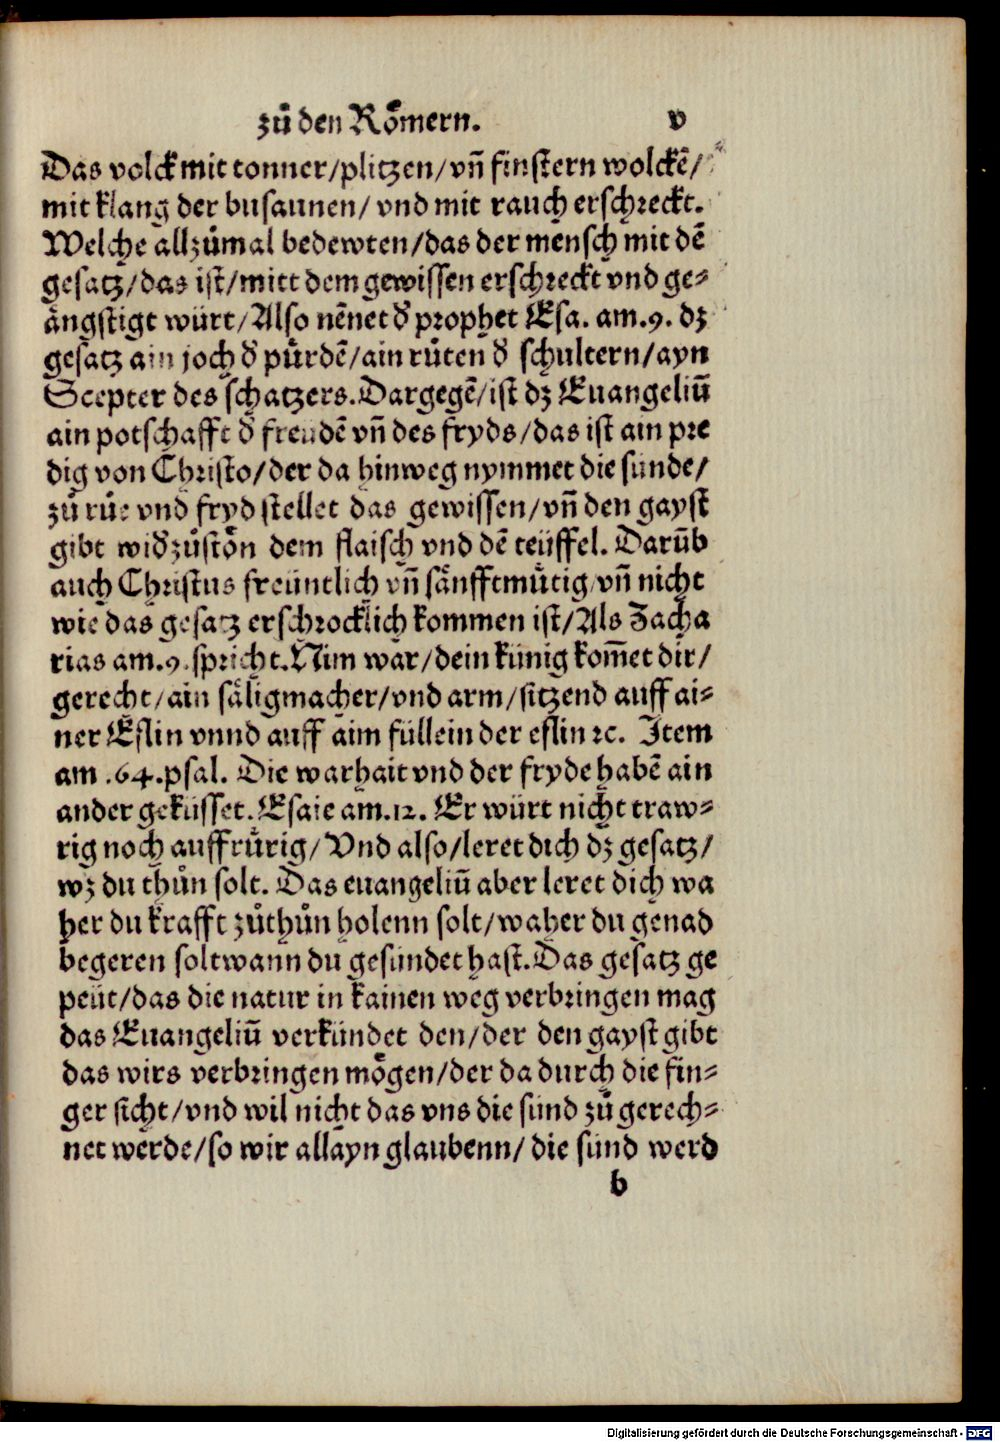 zů den Roͤmern. v
Das volck mit tonner/plitzen/vñ finstern wolckē/
mit klang der busaunen/ vnd mit rauch erschreckt.
Welche allzůmal bedewten/das der mensch mit dē
gesatz/das ist/mitt dem gewissen erschreckt vnd ge⸗
aͤngstigt würt/Also nēnet d̓ prophet Esa. am.9. dz
gesatz ain joch d̓ pürdē/ain růten d̓ schultern/ayn
Scepter des schatzers.Dargegē/ist dz Euangeliū
ain potschafft d̓ freudē vñ des fryds/das ist ain pre
dig von Christo/der da hinweg nymmet die sünde/
zů růe vnd fryd stellet das gewissen/vñ den gayst
gibt wid̓zůstōn dem flaisch vnd dē teüffel. Darūb
auch Christus freüntlich vñ saͤnfftmuͤtig/vñ nicht
wie das gesatz erschrocklich kommen ist/Als Zacha
rias am.9.spricht.Nim war/dein künig kom̄et dir/
gerecht/ain saͤligmacher/vnd arm/sitzend auff ai⸗
ner Eslin vnnd auff aim füllein der eslin ꝛc. Item
am .64.psal. Die warhait vnd der fryde habē ain
ander geküsset.Esaie am.12. Er würt nicht traw⸗
rig noch auffruͤrig/Vnd also/leret dich dz gesatz/
wz du thůn solt. Das euangeliū aber leret dich wa
her du krafft zůthůn holenn solt/waher du genad
begeren solt wann du gesündet hast.Das gesatz ge
peüt/das die natur in kainen weg verbringen mag
das Euangeliū verkündet den/der den gayst gibt
das wirs verbringen moͤgen/der da durch die fin⸗
ger sicht/vnd wil nicht das vns die sünd zů gerech⸗
net werde/so wir allayn glaubenn/ die sünd werd
b
Digitalisierung gefördert durch die Deutsche Forschungsgemeinschaft - DFG